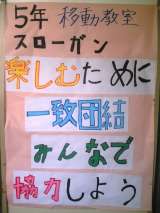 5年 移動教室
スローガン
楽しむために
一致団結
みんなで
協力しよう